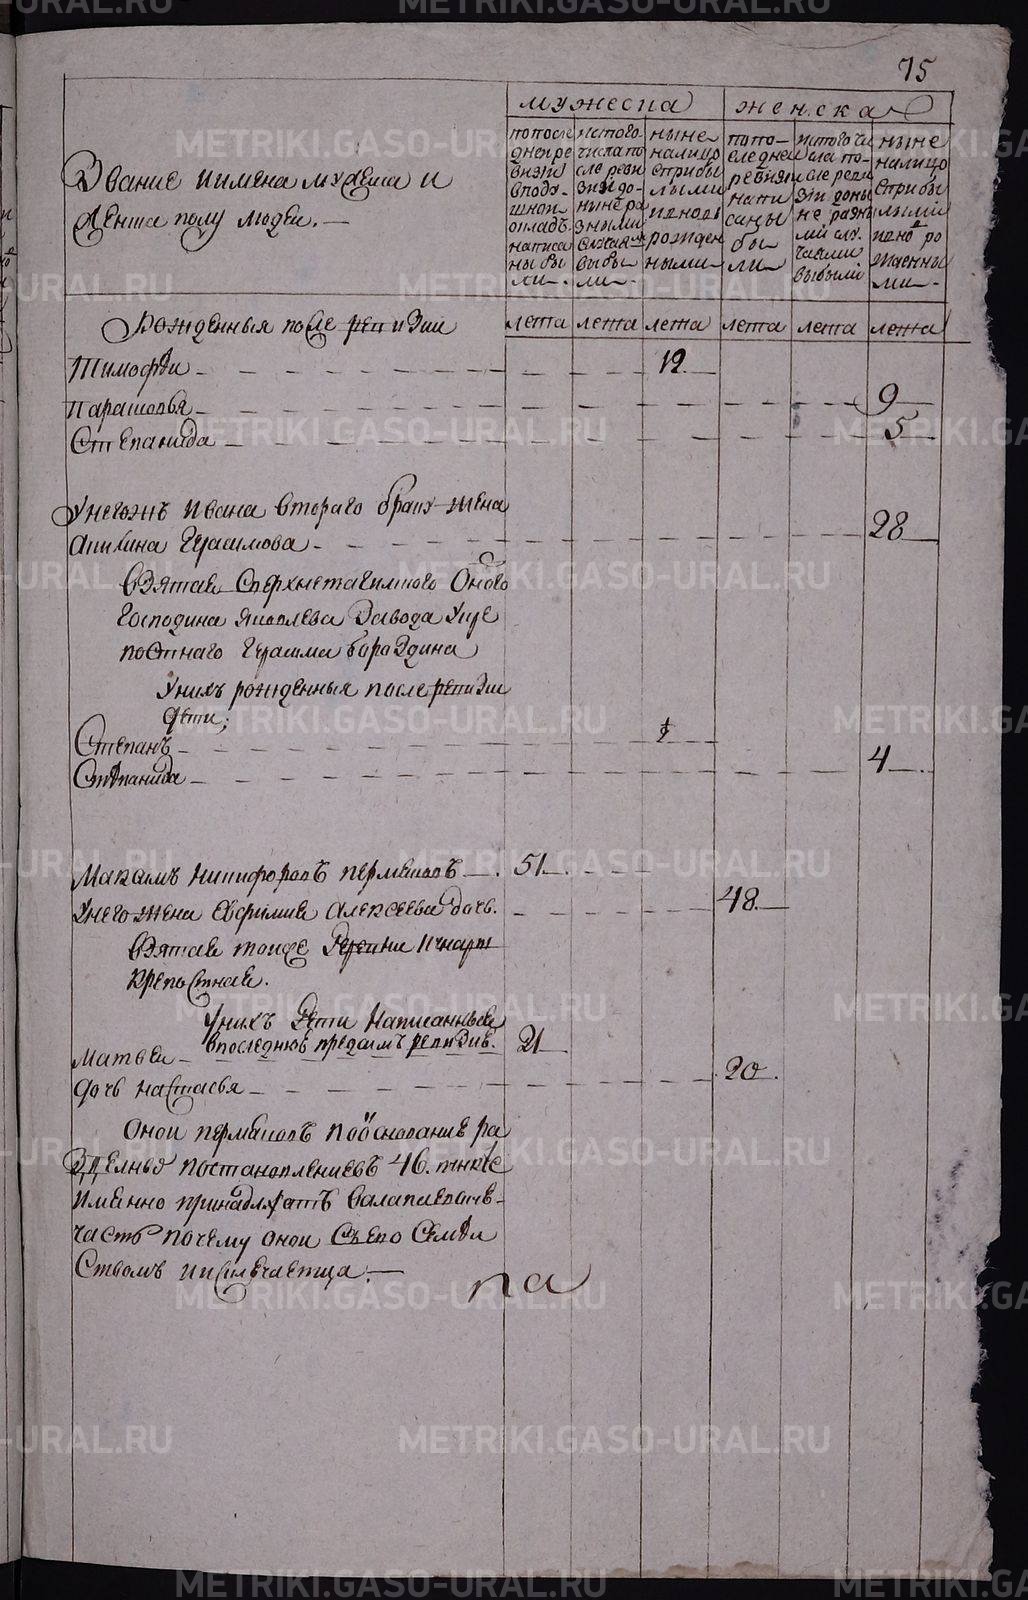 75
мужеска
женска
Звание и имена мужеска и
женска полу людеи. —
по после
дней ре
визïи
в поду-
шной
окладъ
написа
ны бы
ли.
ис того
числа по
сле реви
зïи до-
ныне ра
зными
случаями
выбы
ли.
ныне
налицо
с прибы
лыми
и новь
рожден
ными
по по-
следней
ревизïи
напи
саны
бы
ли
ис того чи
сла по-
сле реви
зïи доны
не разны
ми слу
чаями
выбыли
ныне
налицо
с прибы
лыми
и ново ро
жденны
ми.
Рожденныя после ревизии
лета лета лета лета лета лета
Тимофѣи 12
Парасковья 9
Степанида 5
У него жъ Ивана втораго браку жена
Акилина Герасимова 28
взятая с верхнетагилского оного
господина Яковлева завода у кре
постнаго Герасима Бораздина
У нихъ рожденныя после ревизии
дети;
Степанъ
Стѣпанида 4
Максимъ Никифоровъ Пермяковъ 51
У него жена Евфимия Алексеева дочь. 48
взятая тоиже деревни
крепостная.
У нихъ дети написанныя
в последнюю предъ симъ ревизию.
Матвеи 21
дочь Настасья 20
Онои Пермяковъ по основание ра
здельнаго постановлениевъ 46.
именно принадлѣжатъ
часть почему онои съ ево семѣи
ством и исключаетца. —
па
METRIKI.GASO-URAL.RU